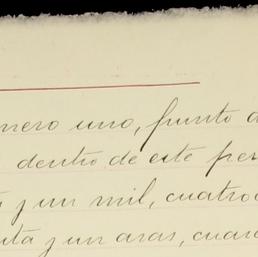 mero uno, punto d
dentro de este per
y un mil, cuatro
nta y un aras, cuare